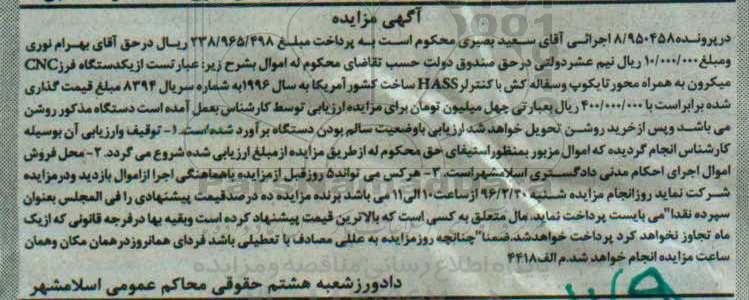 آگهی مزایده
درپرونده۸/۹۵۰۴۵۸ اجرائی آقای سعید بصیری محکوم است به پرداخت مبلغ ۲۳۸/۹۶۵/۴۹۸ ریال درحق آقای بهرام نوری
ومبلغ۱۰/۰۰۰/۰۰۰ ریال نیم عشردولتی درحق صندوق دولت حسب تقاضای محکوم له اموال بشرح زیر: عبارتست ازیکدستگاه فرزCNC
میکرون به همراه محورتایکوپ وسفاله کش باکنترلرHASS ساخت کشورآمریکا به سال ۱۹۹۶به شماره سریال ۸۳۹۴ مبلغ قیمت گذاری
شده برابراست با ۴۰۰/۰۰۰/۰۰۰ ریال بعبارتی چهل میلیون تومان برای مزایده ارزیابی توسط کارشناس بعمل آمده است دستگاه مذکور روشن
می باشد وپس ازخرید روشن تحویل خواهد شدارزیابی باوضعیت سالم بودن دستگاه برآورد شده است. ۱- توقیف وارزیابی آن بوسیله
کارشناس انجام گردیده که اموال مزبور بمنظوراستیفای حق محکوم له ازطریق مزایده ازمبلغ ارزیابی شده شروع می گردد. ۲-محل فروش
اموال اجرای احکام مدنی دادگستری اسلامشهراست. ۳- هرکس می تواند۵ روزقبل ازمزایده باهماهنگی اجرا ازاموال بازدید ودرمزایده
شرکت نماید روزانجام مزایده شنبه ۹۶/۲/۳۰ ازساعت۱۰الی۱۱ می باشد برنده مزایده ده درصدقیمت پیشنهادی را فی المجلس بعنوان
سپرده نقدا"می بایست پرداخت نماید. مال متعلق به کسی است که بالاترین قیمت پیشنهاد کرده است وبقیه بها درفرجه قانونی که ازیک
ماه تجاوز نخواهد کرد پرداخت خواهدشد.ضمنا"چنانچه روزمزایده به عللی مصادف با تعطیلی باشد فردای همانروزدرهمان مکان وهمان
ساعت مزایده انجام خواهد شد.م الف۴۴۱۸
دادورزشعبه هشتم حقوقی محاکم عمومی اسلامشهر